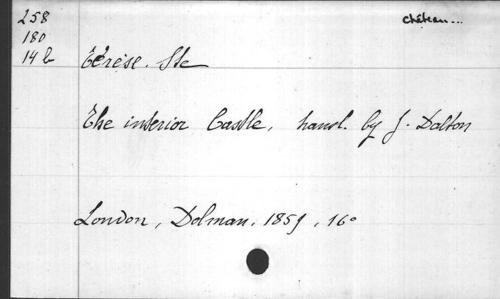 258
château...
180
14 b
Térèse. Ste
The interior Castle, transl. by J. Dalton
London, Dolman, 1859, 16°